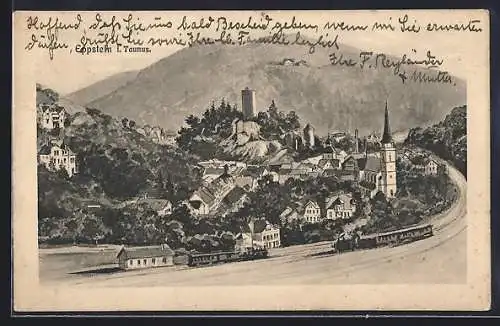 Hoffend, daß Sie uns bald Bescheid geben, wenn wir Sie erwarten
dürfen, grüßt Sie sowie Ihre lb. Familie herzlich
Eppstein i. Taunus.
Ihre F.
& Mutter